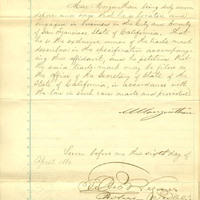 Max Morgenthau being duly sworn
deposes and says that he is located and
engaged in business in the City and County
of San Francisco State of California. That
he is the exclusive owner of the trade mark
described in the specification accompany-
ing this affidavit, and he petitions that
the said trade mark may be filed in
the office of the Secretary of State of the
State of California, in accordance with
the law in such case made and provided
M Morgenthau
Sworn before me this sixth day of
April